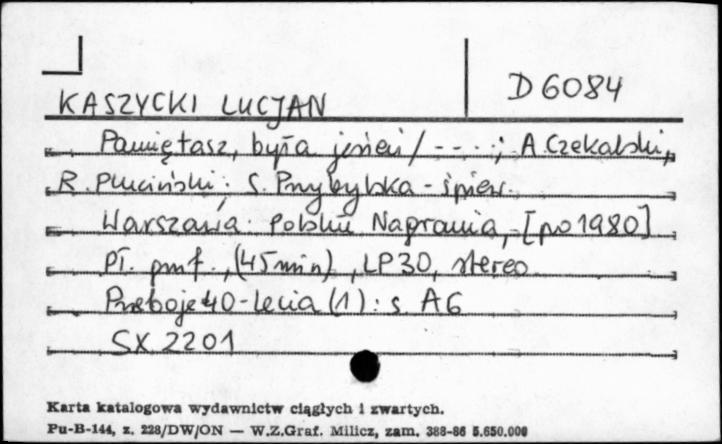 D 6084
KASZYCKI LUCJAN
Pamiętasz, była jesień / ----; A. Czekalski,
R. Pluciński; S. Przybylska - śpiew.
Warszawa: Polskie Nagrania, [po 1980]
Pł. gmf., (45 min), LP30, stereo
Przeboje 40-lecia (1): s. A6
SX 2201
Karta katalogowa wydawnictw ciągłych i zwartych.
Pu-B-144, z. 228/DW/ON — W.Z.Graf. Milicz, zam. 388-86 5.650.000